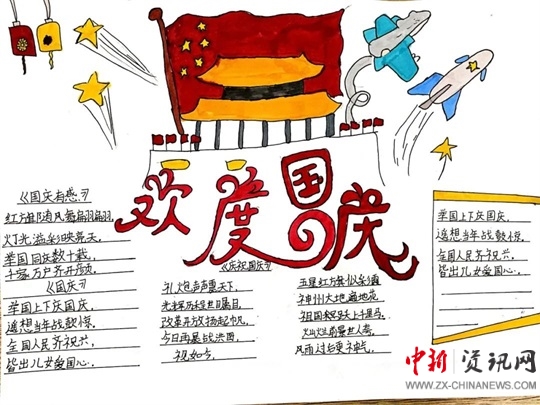 欢度国庆
《国庆有感》
灯光溢彩映亮天,
举国同庆数十载,
千家万户齐开颜,
《国庆》
举国上下庆国庆
遥想当年战鼓惊,
全国人民齐祝兴,
皆出儿女爱国心.
《庆祝国庆》
礼炮声声震天下,
光辉历程世瞩目,
改革开放扬起帆,
今日再展战洪图
祝如今,
神州大地遍地花
祖国
风雨过后更神气
举国上下庆国庆,
遥想当年战鼓惊,
全国人民齐祝兴,
皆出儿女爱国心.
中新资讯网
WWW.ZX-CHINANEWS.COM